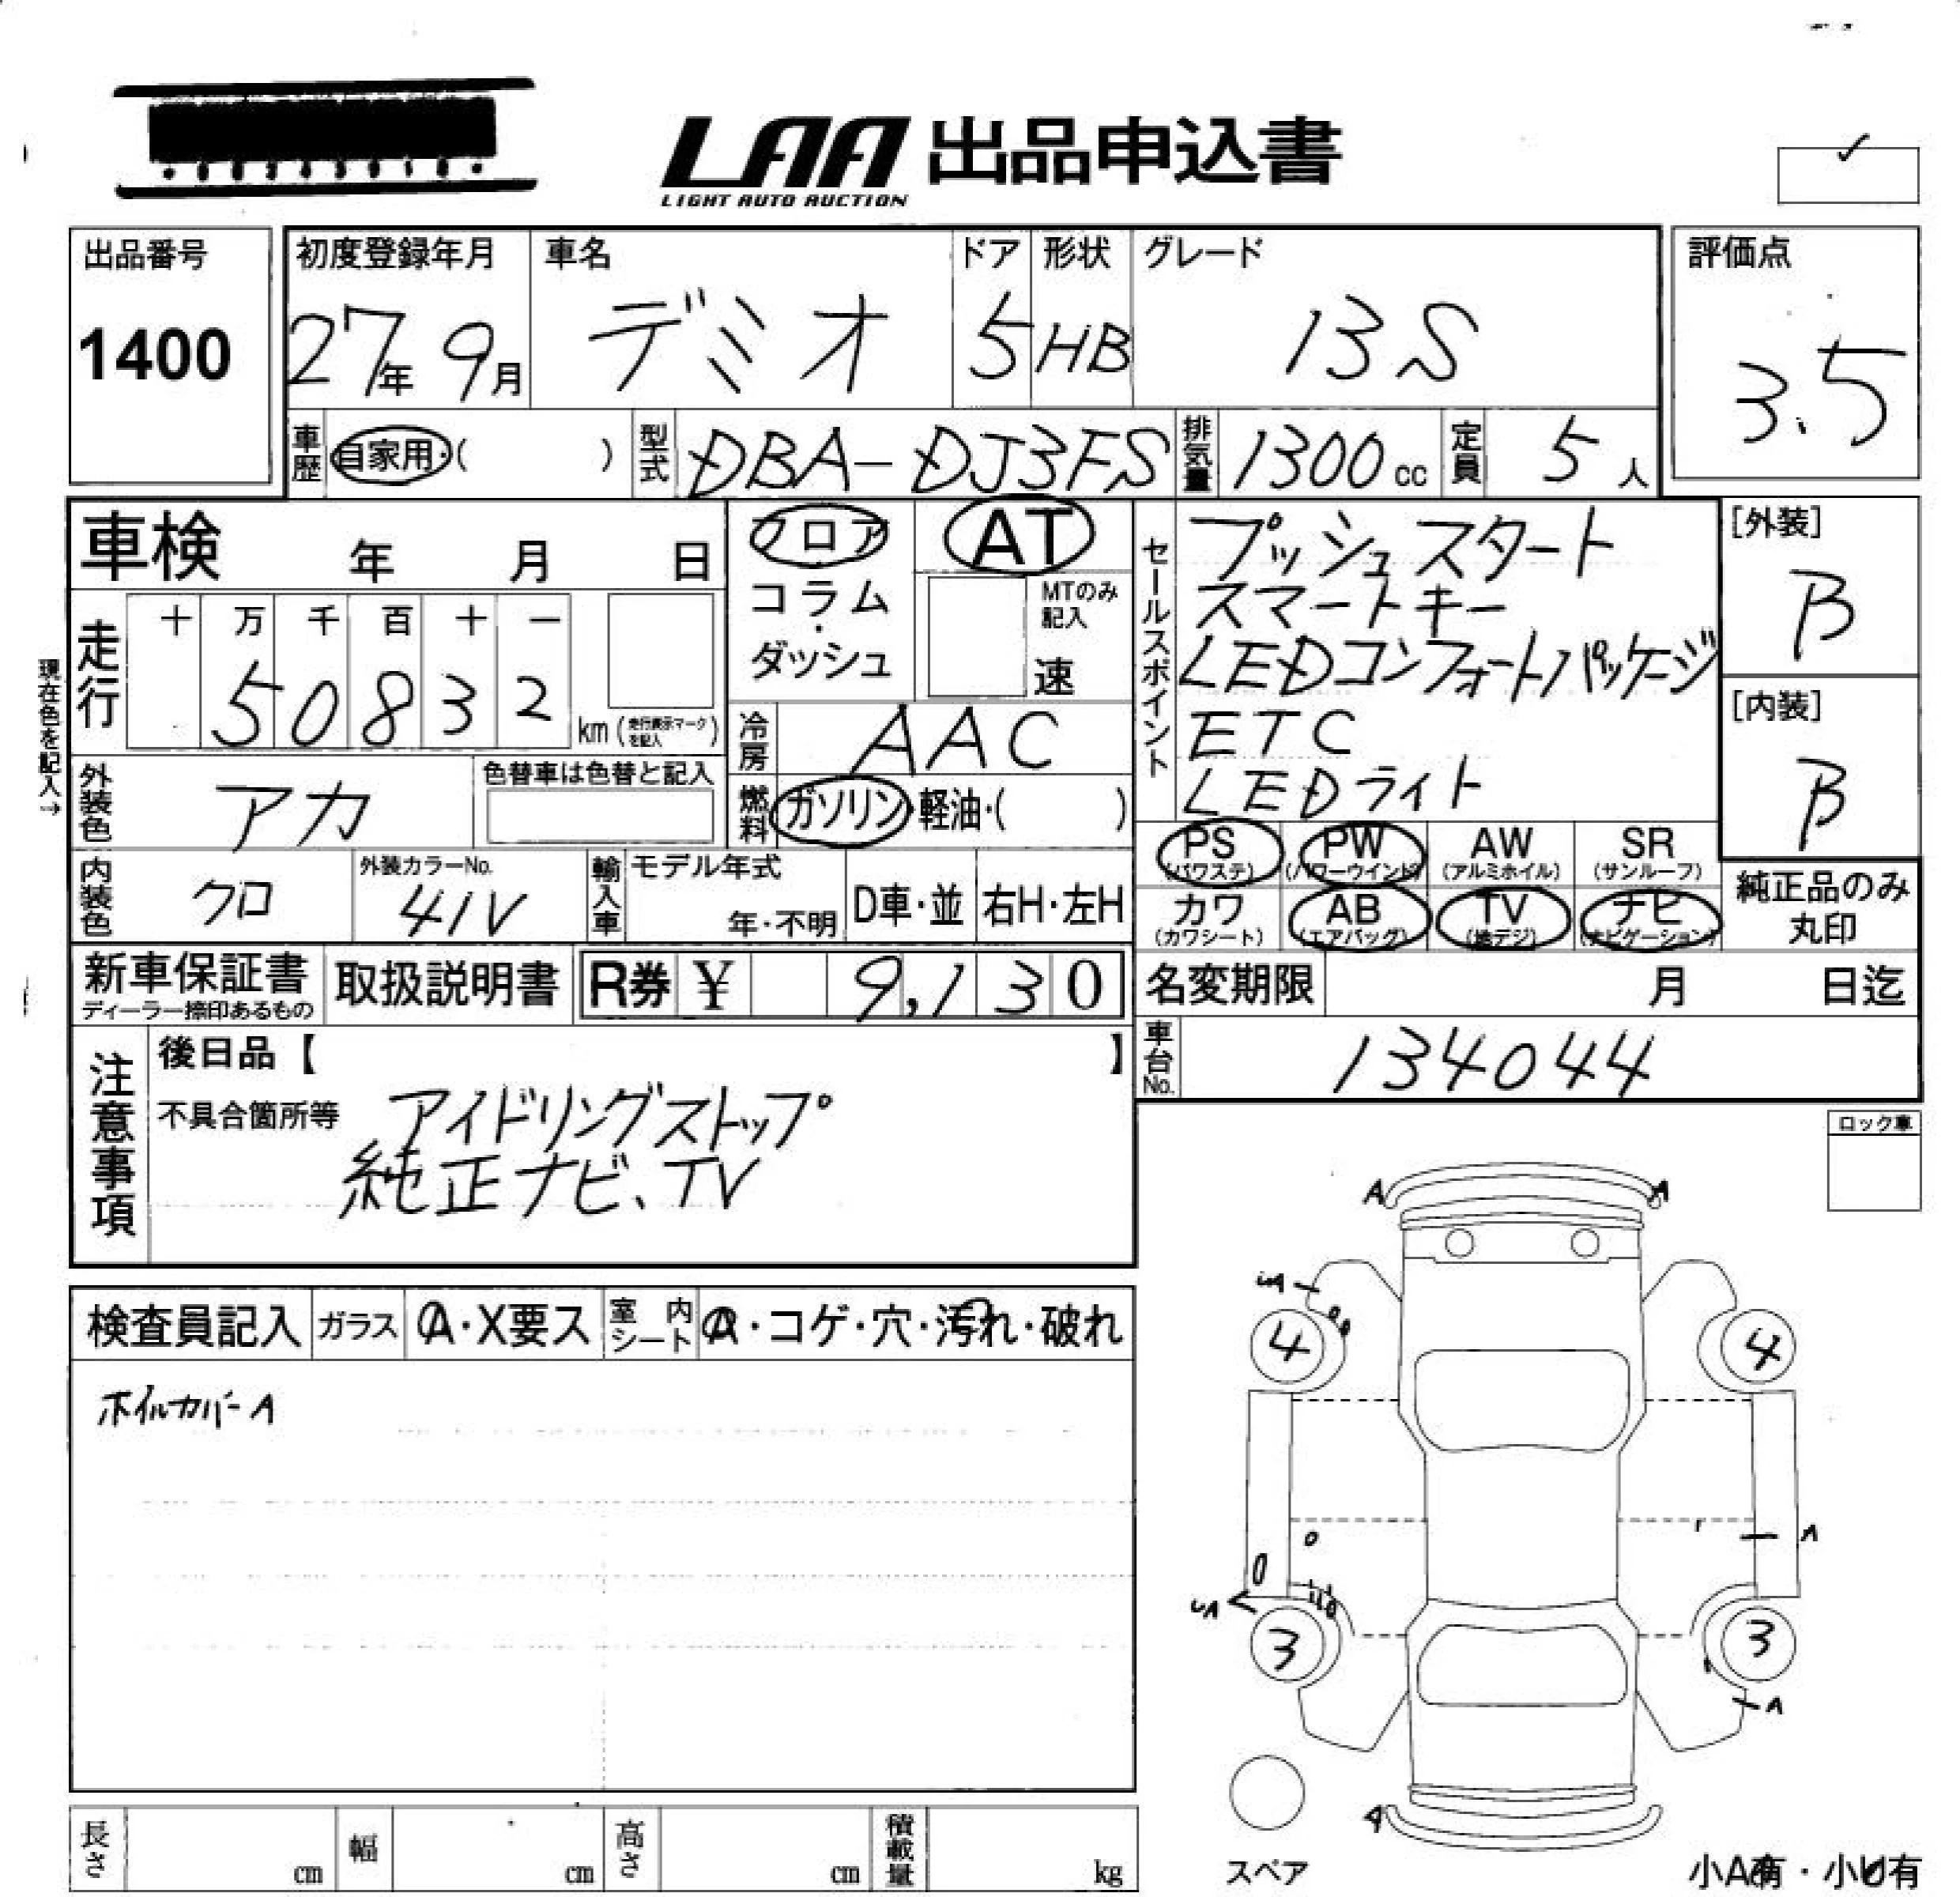 LAA 出品申込書
LIGHT AUTO AUCTION
出品番号
1400
初度登録年月
27年 9月
車名
デミオ
ドア
5
形状
HB
グレード
13S
評価点
3.5
車歴
自家用・( )
型式
DBA-DJ3FS
排気量
1300 cc
定員
5 人
車検 年 月 日
フロア
コラム・ダッシュ
AT
MTのみ記入
速
セールスポイント
プッシュスタート
スマートキー
LEDコンフォートパッケージ
ETC
LEDライト
[外装]
B
[内装]
B
現在色を記入→
走行
十 万 千 百 十 一
5 0 8 3 2
km (走行表示マークを記入)
冷房
AAC
外装色
アカ
色替車は色替と記入
燃料
ガソリン・軽油・( )
PS (パワステ)
PW (パワーウインド)
AW (アルミホイル)
SR (サンルーフ)
カワ (カワシート)
AB (エアバッグ)
TV (地デジ)
ナビ (ナビゲーション)
純正品のみ
丸印
内装色
クロ
外装カラーNo.
41V
輸入車
モデル年式
年・不明
D車・並
右H・左H
新車保証書
ディーラー捺印あるもの
取扱説明書
R券 ¥ 9,130
名変期限 月 日迄
車台No.
134044
注意事項
後日品【 】
不具合箇所等
アイドリングストップ
純正ナビ、TV
ロック車
検査員記入
ガラス
A・X要ス
室内シート
A・コゲ・穴・汚れ・破れ
ホイルカバーA
A A
4 4
A
UA
3 3
A
A
スペア
長さ cm
幅 cm
高さ cm
積載量 kg
小A有・小U有